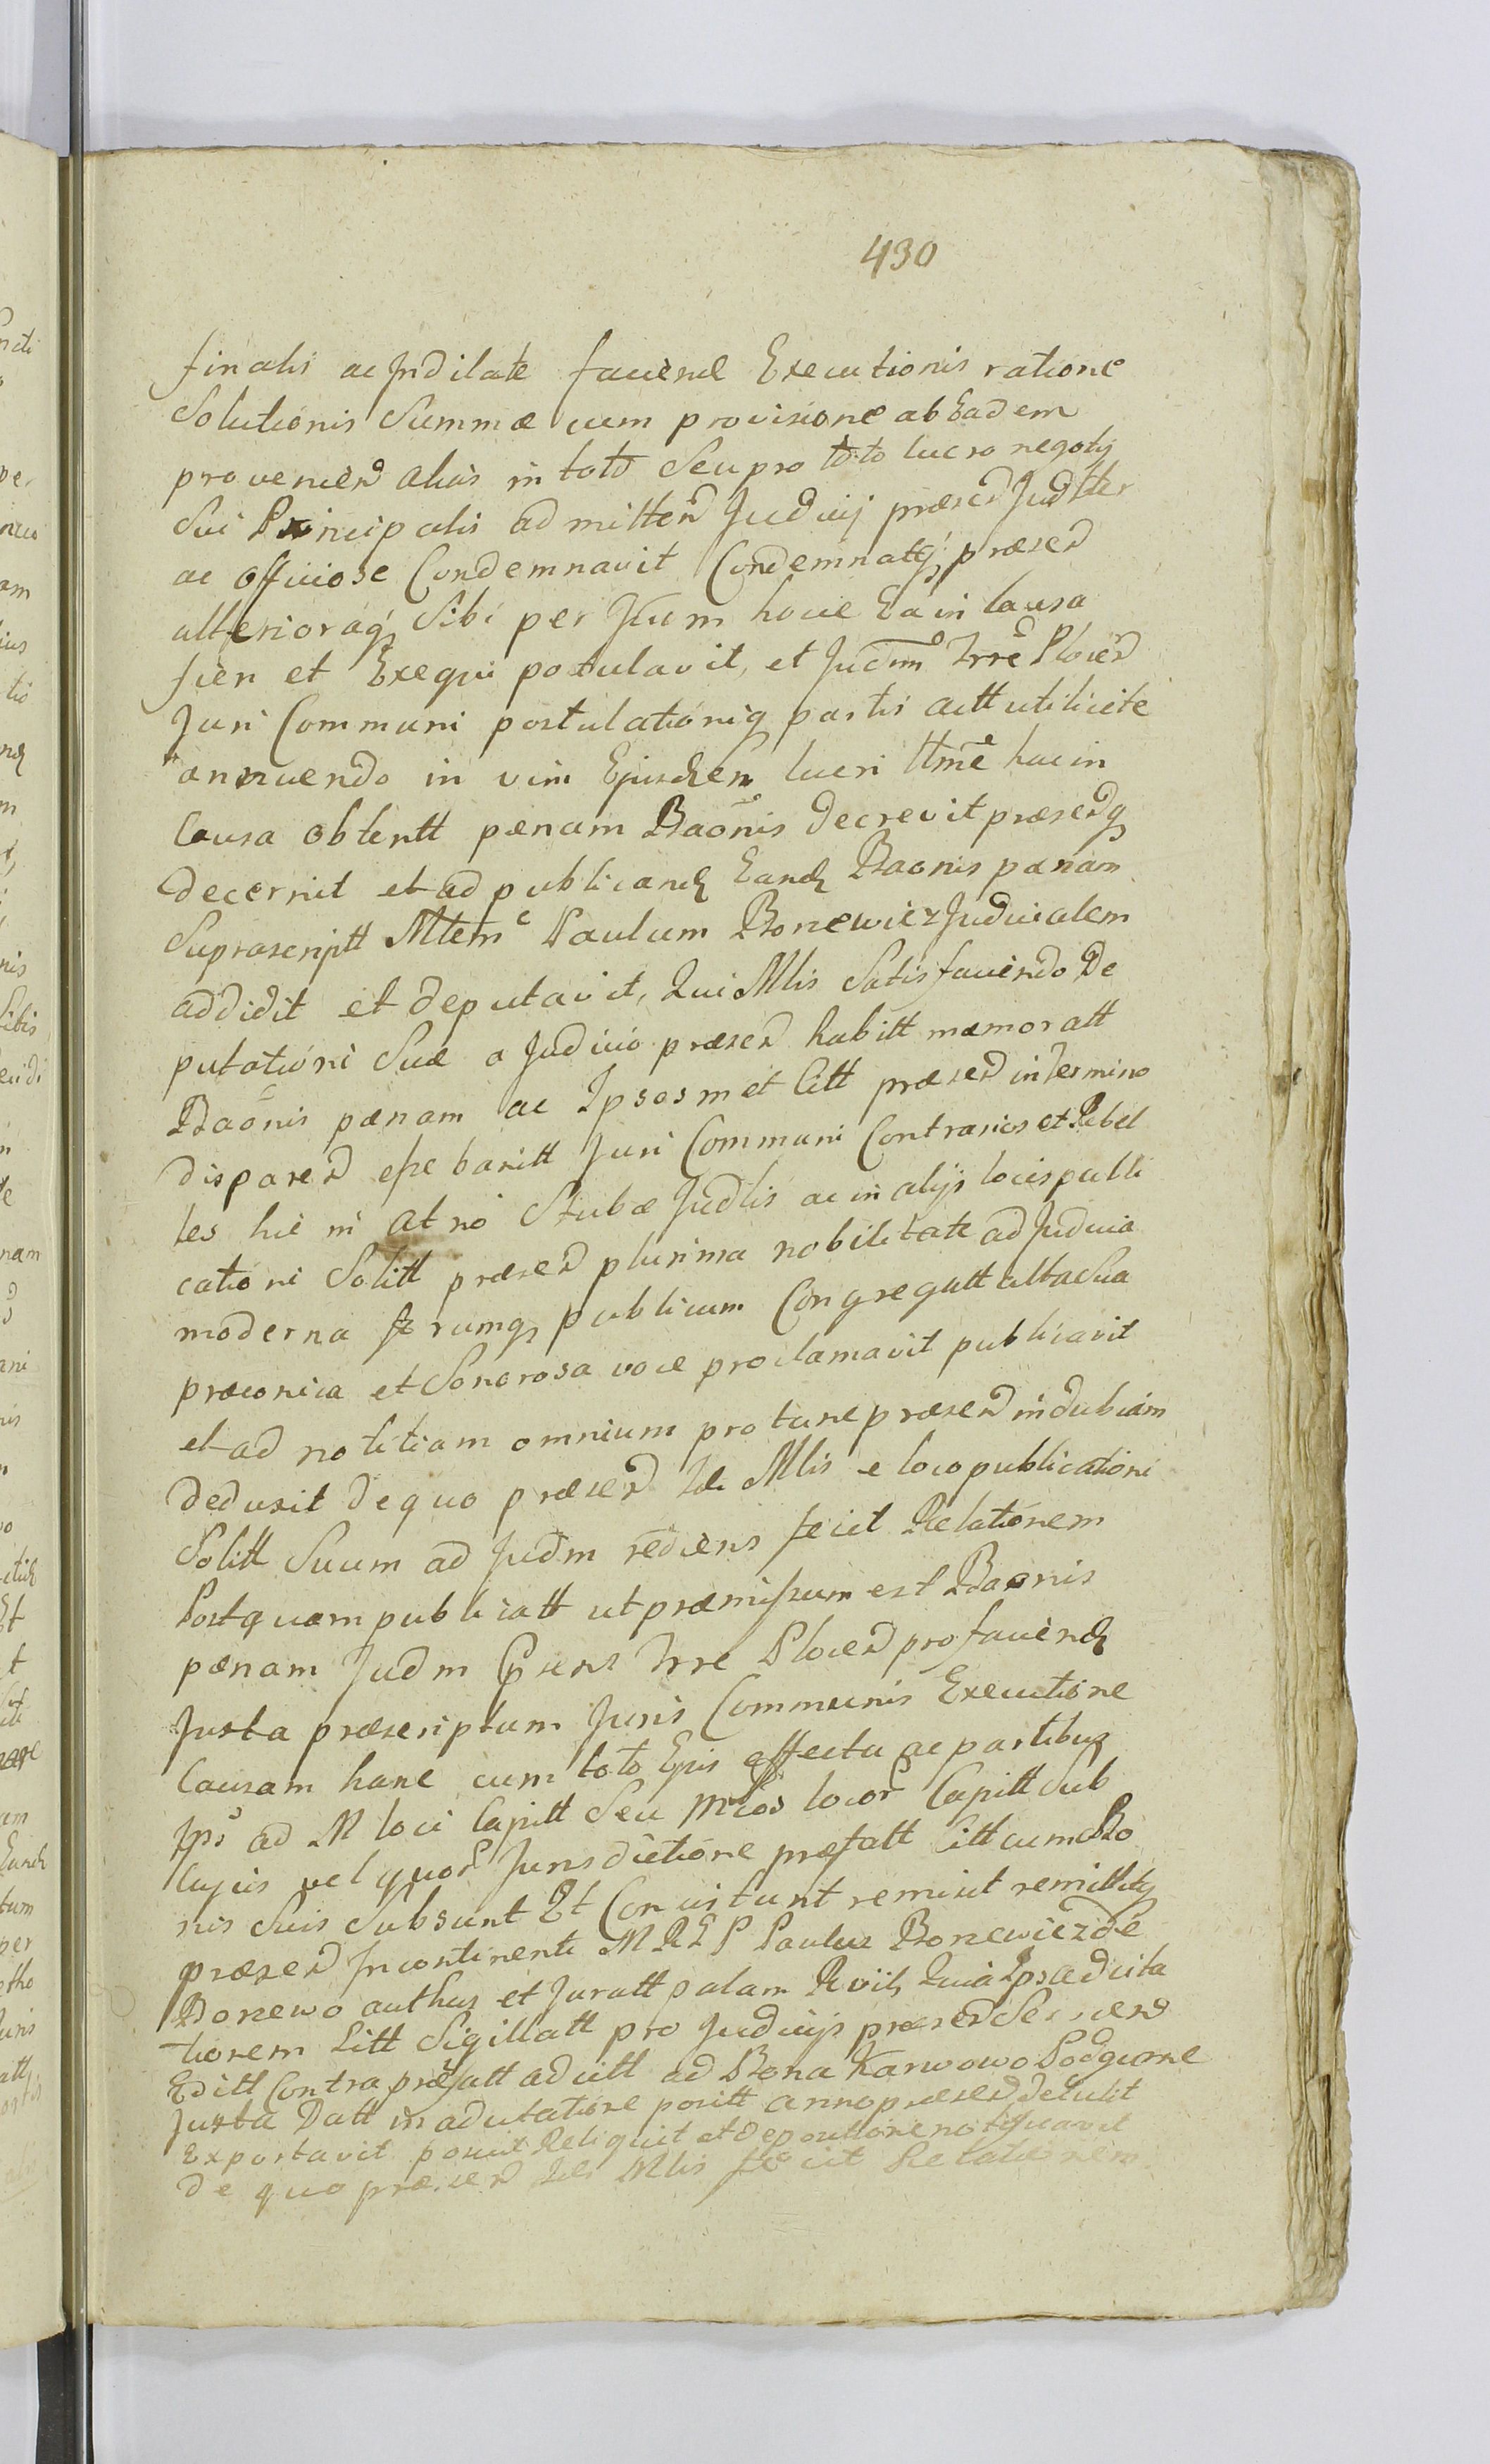 430
finalis ac Indilate faciend Executionis ratione
Solutionis Summæ cum provisione ab Eadem
provenien alias in toto Seu pro toto lucro negotij
Sui Principalis admitten Judicij præsen Judltter
ac officiose Condemnavit Condemnatq præsen
ulterioraq Sibi per Jdum hocce Ea in Causa
fieri et Exequi postulavit, et Judm Trre Plocen
Juri Communi postulationiq partis actt utilicite
annuendo in vim Ejusdem lucri ttme hac in
Causa obtentt pænam Baonis decrevit præsenq
decernit et ad publicand Eand Baonis pænam
Suprascriptt Mltem Paulum Bonewicz Judicialem
addidit et deputavit, Qui Mlis Satisfaciendo De
putationi Suæ a Judicio præsen habitt memoratt
Baonis pænam ac Ipsosmet Citt præsen in termino
disparen esse banitt Juri Communi Contrarios et Rebel
les hic in atrio Stubæ Judlis ac in alijs locis publi
cationi Solitt præsen plurima nobilitate ad Judicia
moderna forumq publicum Congregatt alta Sua
præconica et Sonorosa voce proclamavit publicavit
et ad notitiam omnium pro tunc præsen indubiam
deduxit de quo præsen Id Mlis e loco publicationi
Solitt Suum ad Judm rediens fecit Relationem
Postquam publicatt ut præmissum est Baonis
pænam Judm Præsens Trre Plocen pro faciend
Juxta præscriptum Juris Communis Executione
Causam hanc cum toto Ejus effectu ac partibus
Ips ad M loci Capitt Seu Mcos locor Capitt Sub
Cujus vel quor Jurisdictione præfatt Citt cum Bo
nis Suis Subsunt Et Consistunt remisit remittitq
præsen Incontinenti M R E P Paulus Bonewicz de
Bonewo authus et Juratt palam Quia Ipse adcita
tionem Litt Sigillatt pro Judicijs præsen
Editt Contra præfatt adcitt ad Bona Karwowo Podgorne
Juxta Datt in adcitatione positt anno præsen detulit
Exportavit posuit Reliquit et de positione notificavit
de quo præsen Id Mlis fecit Relationem